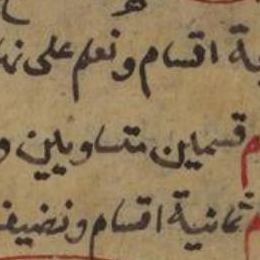 اقسام ونعلم على
قسمين متساويين و
ثمانية اقسام ونضيف